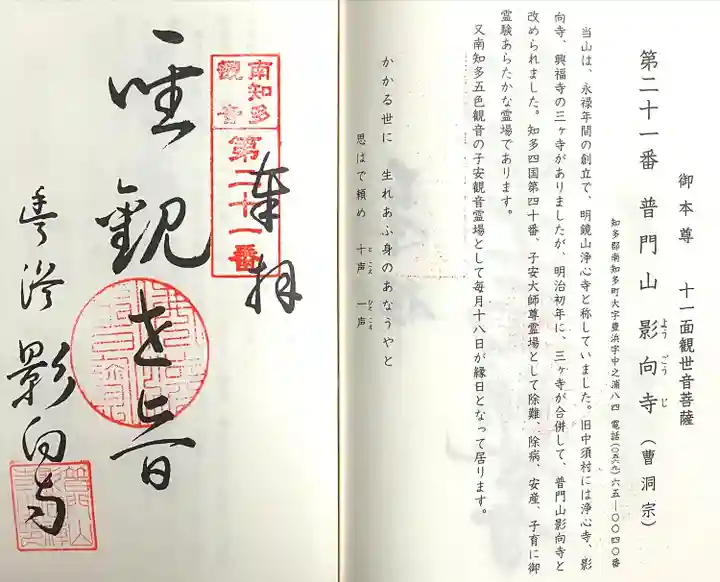 第二十一番 普門山 影向寺（曹洞宗）
よう ごう じ
御本尊 十一面観世音菩薩
知多郡南知多町大字豊浜字中之浦八四 電話（〇五六九）六五―〇〇四〇番
当山は、永禄年間の創立で、明鏡山浄心寺と称していました。旧中須村には浄心寺、影
向寺、興福寺の三ヶ寺がありましたが、明治初年に、三ヶ寺が合併して、普門山影向寺と
改められました。知多四国第四十番、子安大師尊霊場として除難、除病、安産、子育に御
霊験あらたかな霊場であります。
又南知多五色観音の子安観音霊場として毎月十八日が縁日となって居ります。
かかる世に 生れあふ身のあなうやと
思はで頼め 十声 一声
とこえ ひとこえ
奉拝
南知多
観音
第二十一番
聖観世音
豊浜 影向寺